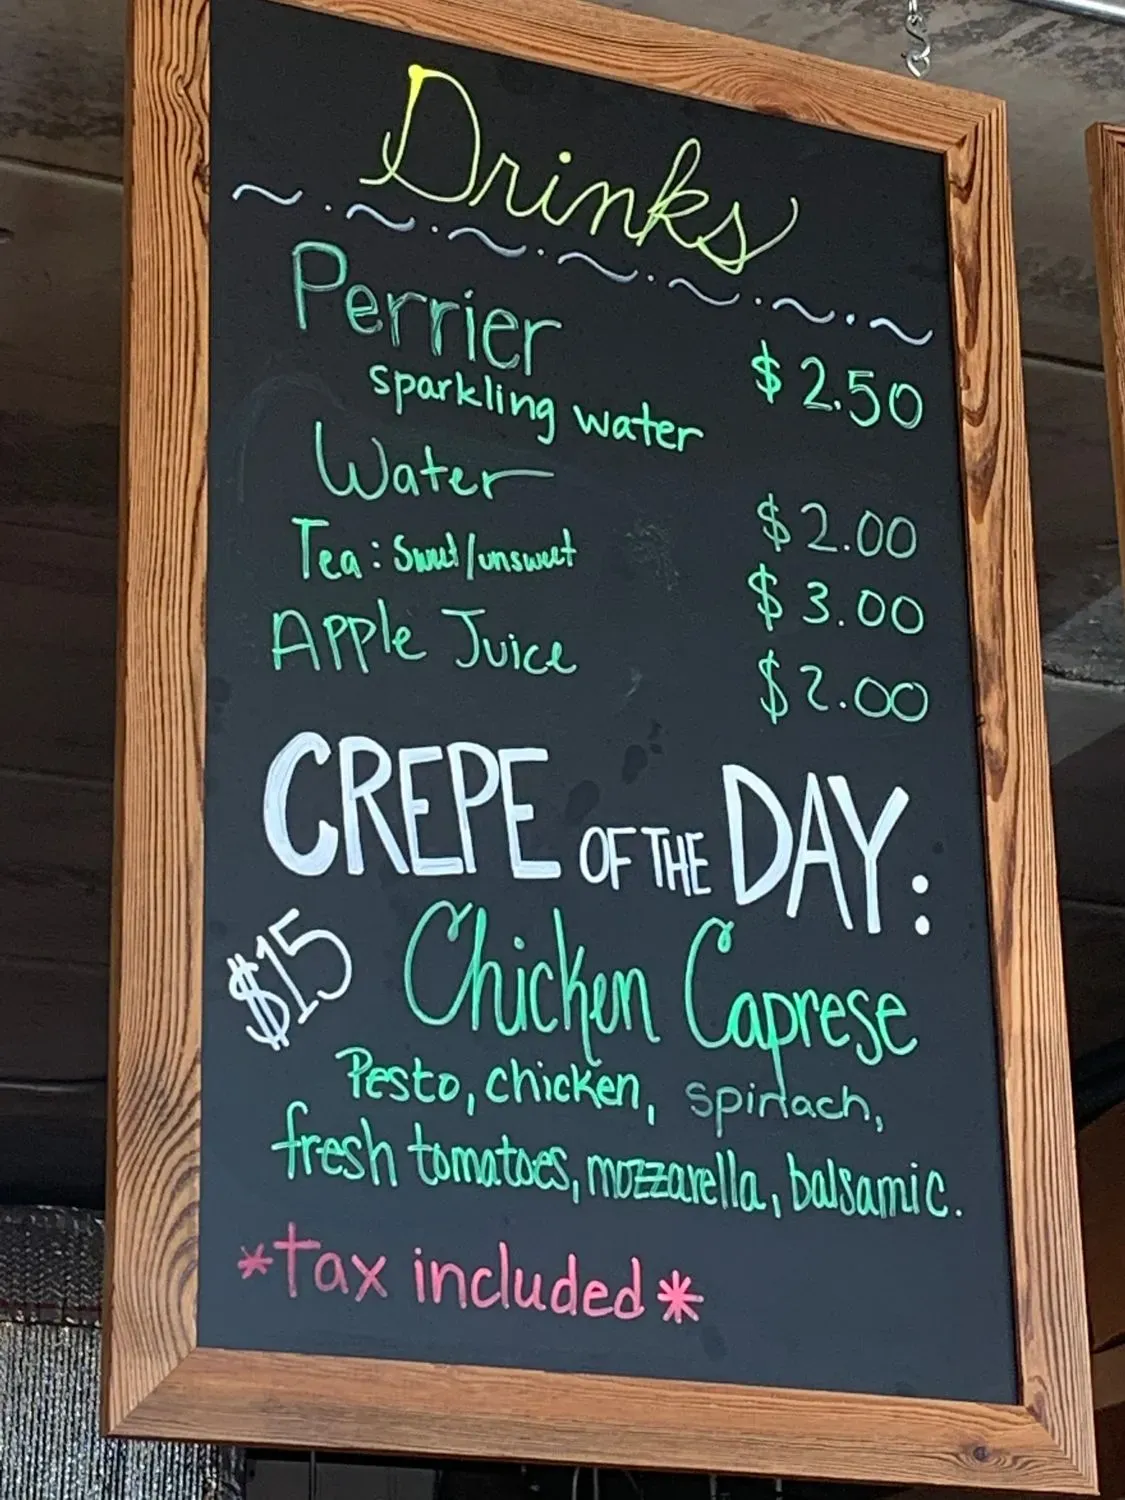 Drinks
Perrier
sparkling water $2.50
Water $2.00
Tea: Sweet/unsweet $3.00
Apple Juice $2.00
CREPE OF THE DAY:
$15 Chicken Caprese
Pesto, chicken, spinach,
fresh tomatoes, mozzarella, balsamic.
*tax included*